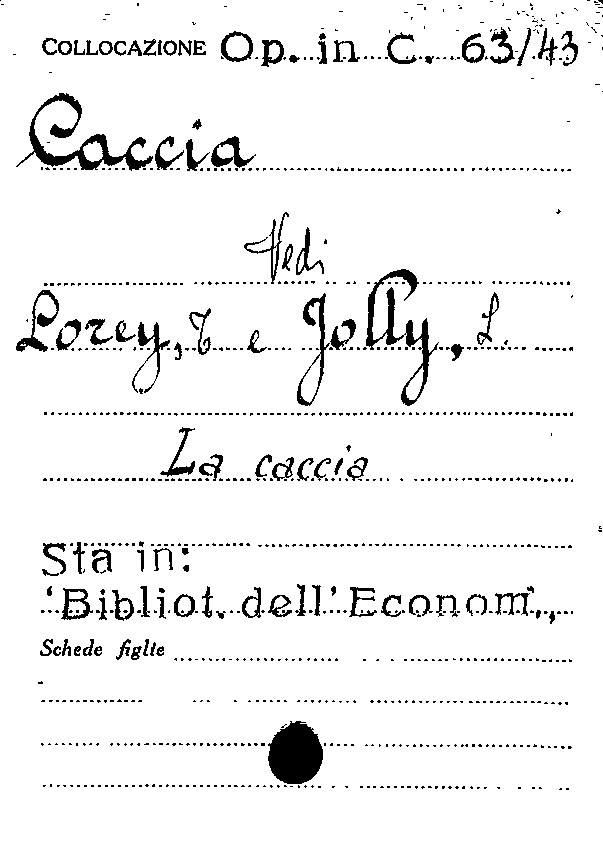 COLLOCAZIONE Op. in C. 63/43
Caccia
Vedi
Lorey, T. e Jolly, L.
La caccia
Sta in:
'Bibliot. dell' Econom.,
Schede figlie